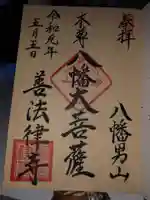 拝
八幡男山
本尊
八幡大菩薩
善法律寺
令和元年
五月五日